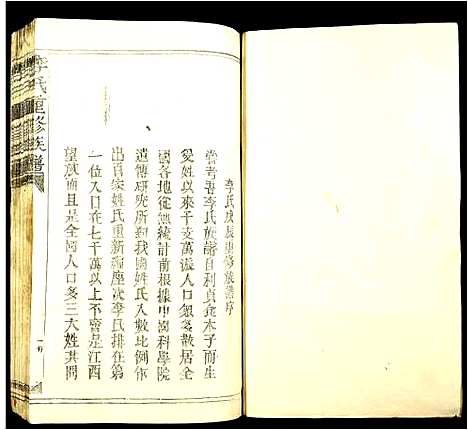 李氏戊辰重修族譜序
嘗考吾李氏族譜自利貞食木子而生
爰姓以來千支萬派人口繁多散居全
國各地從無統計前根據中國科學院
遺傳研究所對我國姓氏人數比例作
出百家姓氏重新編座次李氏排在第
一位人口在七千萬以上不啻是江西
望族而且是全國人口多三大姓其間
李氏重修族譜